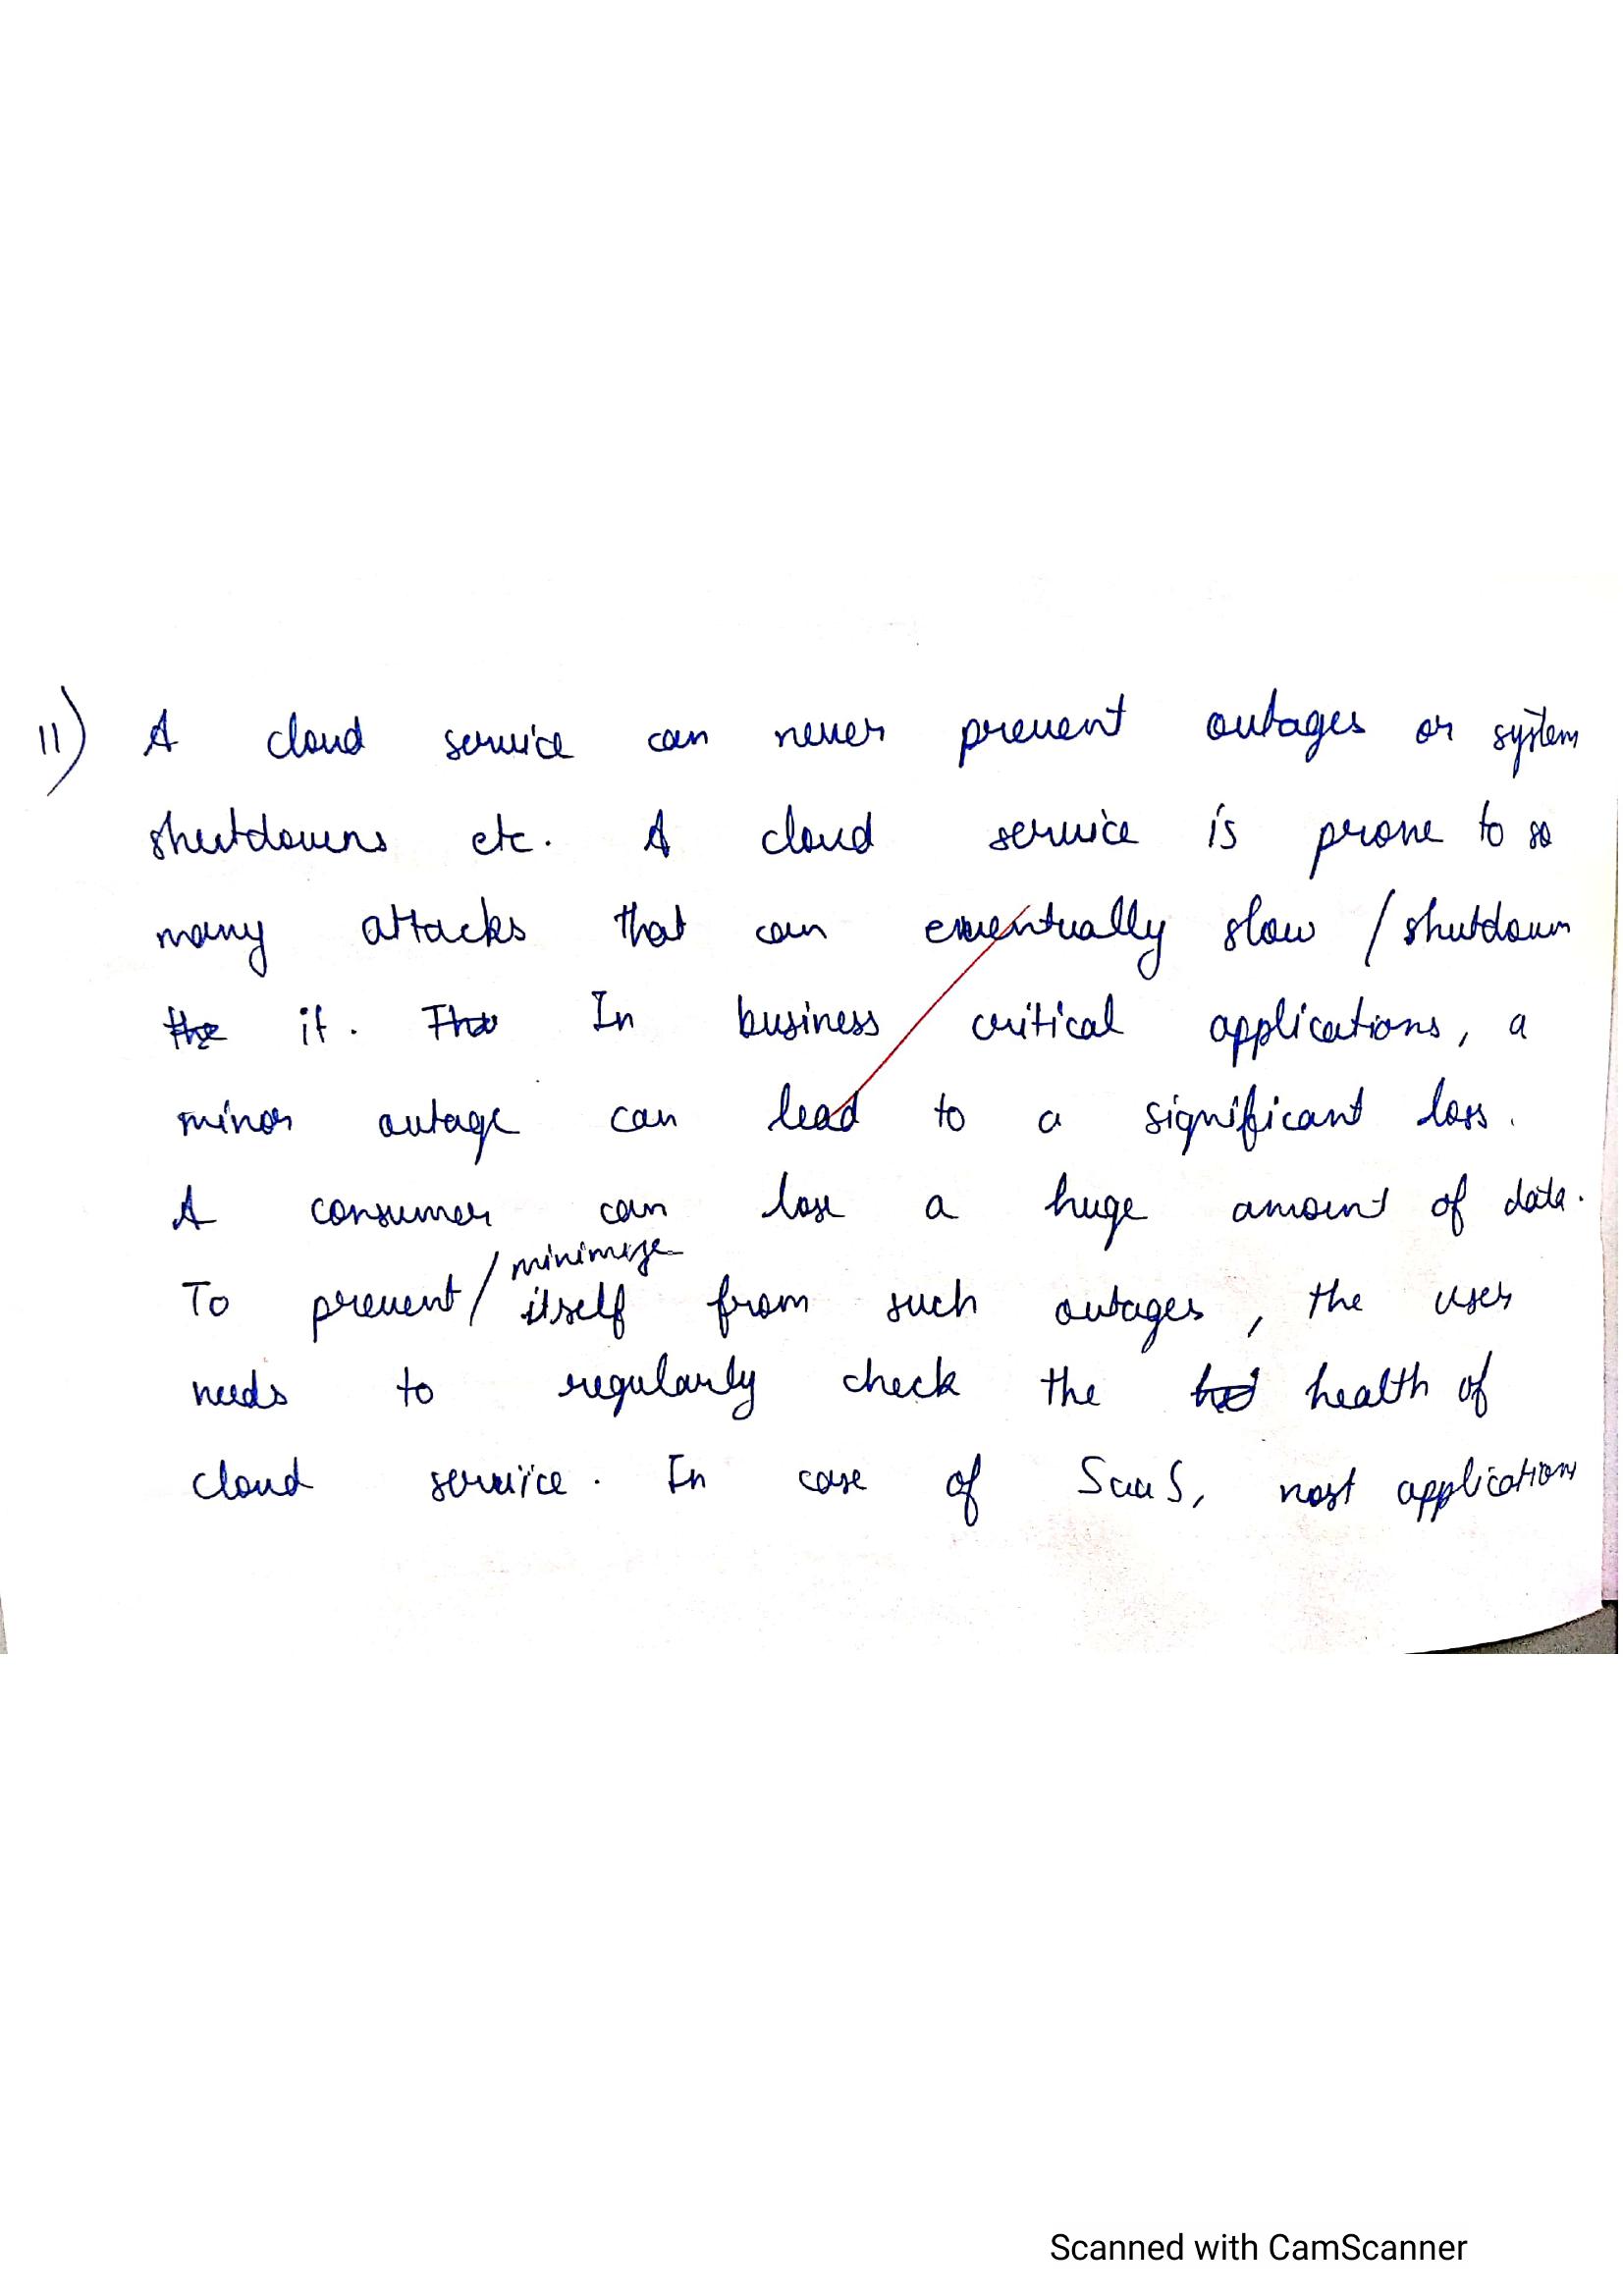 11) A cloud service can never prevent outages or system
shutdowns etc. A cloud service is prone to so
many attacks that can eventually slow / shutdown
the it. The In business critical applications, a
minor outage can lead to a significant loss.
A consumer can lose a huge amount of data.
minimize
To prevent/ itself from such outages, the user
needs to regularly check the health of
cloud service. In case of SaaS, most applications
Scanned with CamScanner